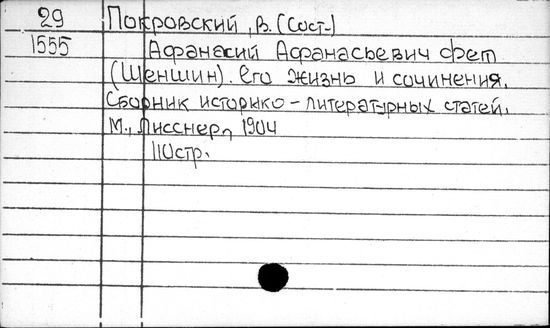 29 Покровский, В. (Сост.)
1555 Афанасий Афанасьевич Фет
(Шеншин). Его жизнь и сочинения.
Сборник историко-литературных статей.
М., Лисснер, 1904
110стр.